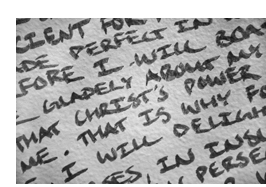 CIENT FOR
DE PERFECT IN
FORE I WILL BOA
GLADELY ABOUT MY
THAT CHRIST'S POWER
ME. THAT IS WHY FO
I WILL DELIGH
SES, IN INSU
PERSE